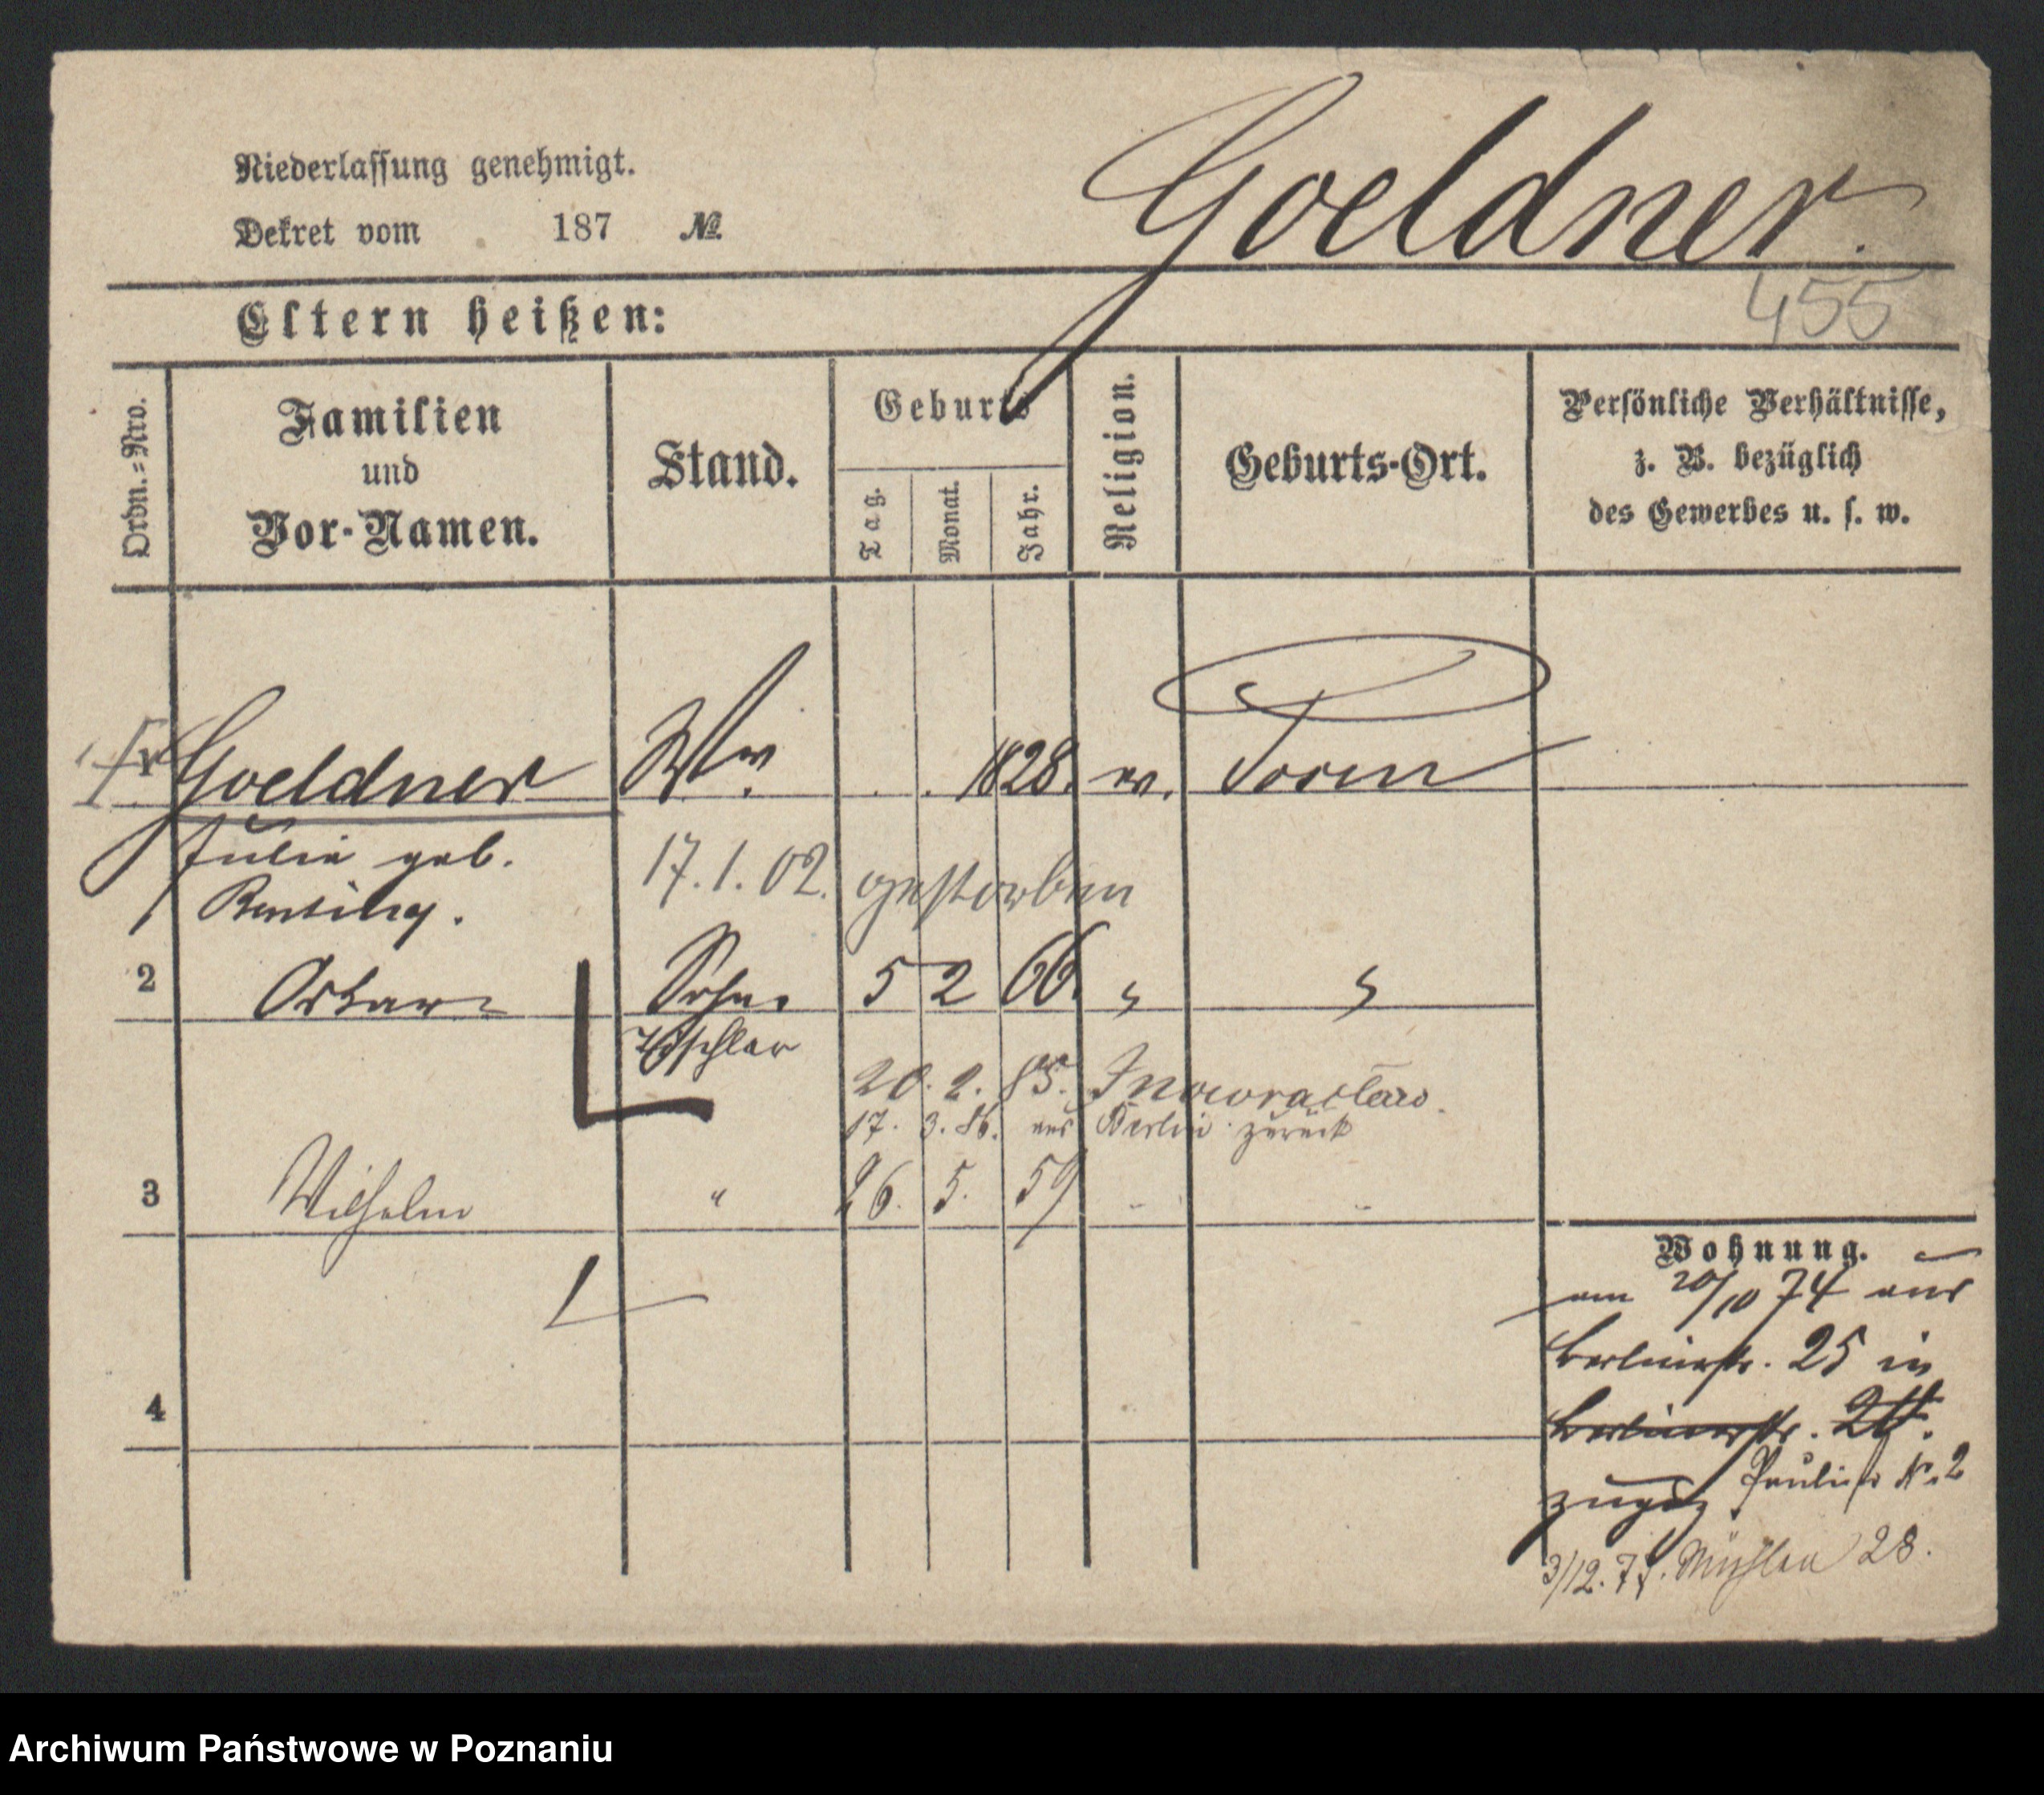 Niederlassung genehmigt.
Dekret vom 187 №
Goeldner.
455
Eltern heißen:
Ordn.-Nro.
Familien
und
Vor-Namen.
Stand.
Geburts
Tag.
Monat.
Jahr.
Religion.
Geburts-Ort.
Persönliche Verhältnisse,
z. B. bezüglich
des Gewerbes u. s. w.
Goeldner Ww. . . 1828. ev. Posen
Julie geb.
17.1.02. gestorben
2 Oskar Sohn 5 2 66. " "
Tischler
20. 2. 85. Inowraclaw.
17. 3. 86. aus Berlin zurück
3 Wilhelm " 26. 5. 59 " "
Wohnung.
am 20/10 74 aus
Berlinerstr. 25 in
Berlinerstr.
zugez. Paulist. N. 2
3/12. 77. Mühlen 28.
4
Archiwum Państwowe w Poznaniu